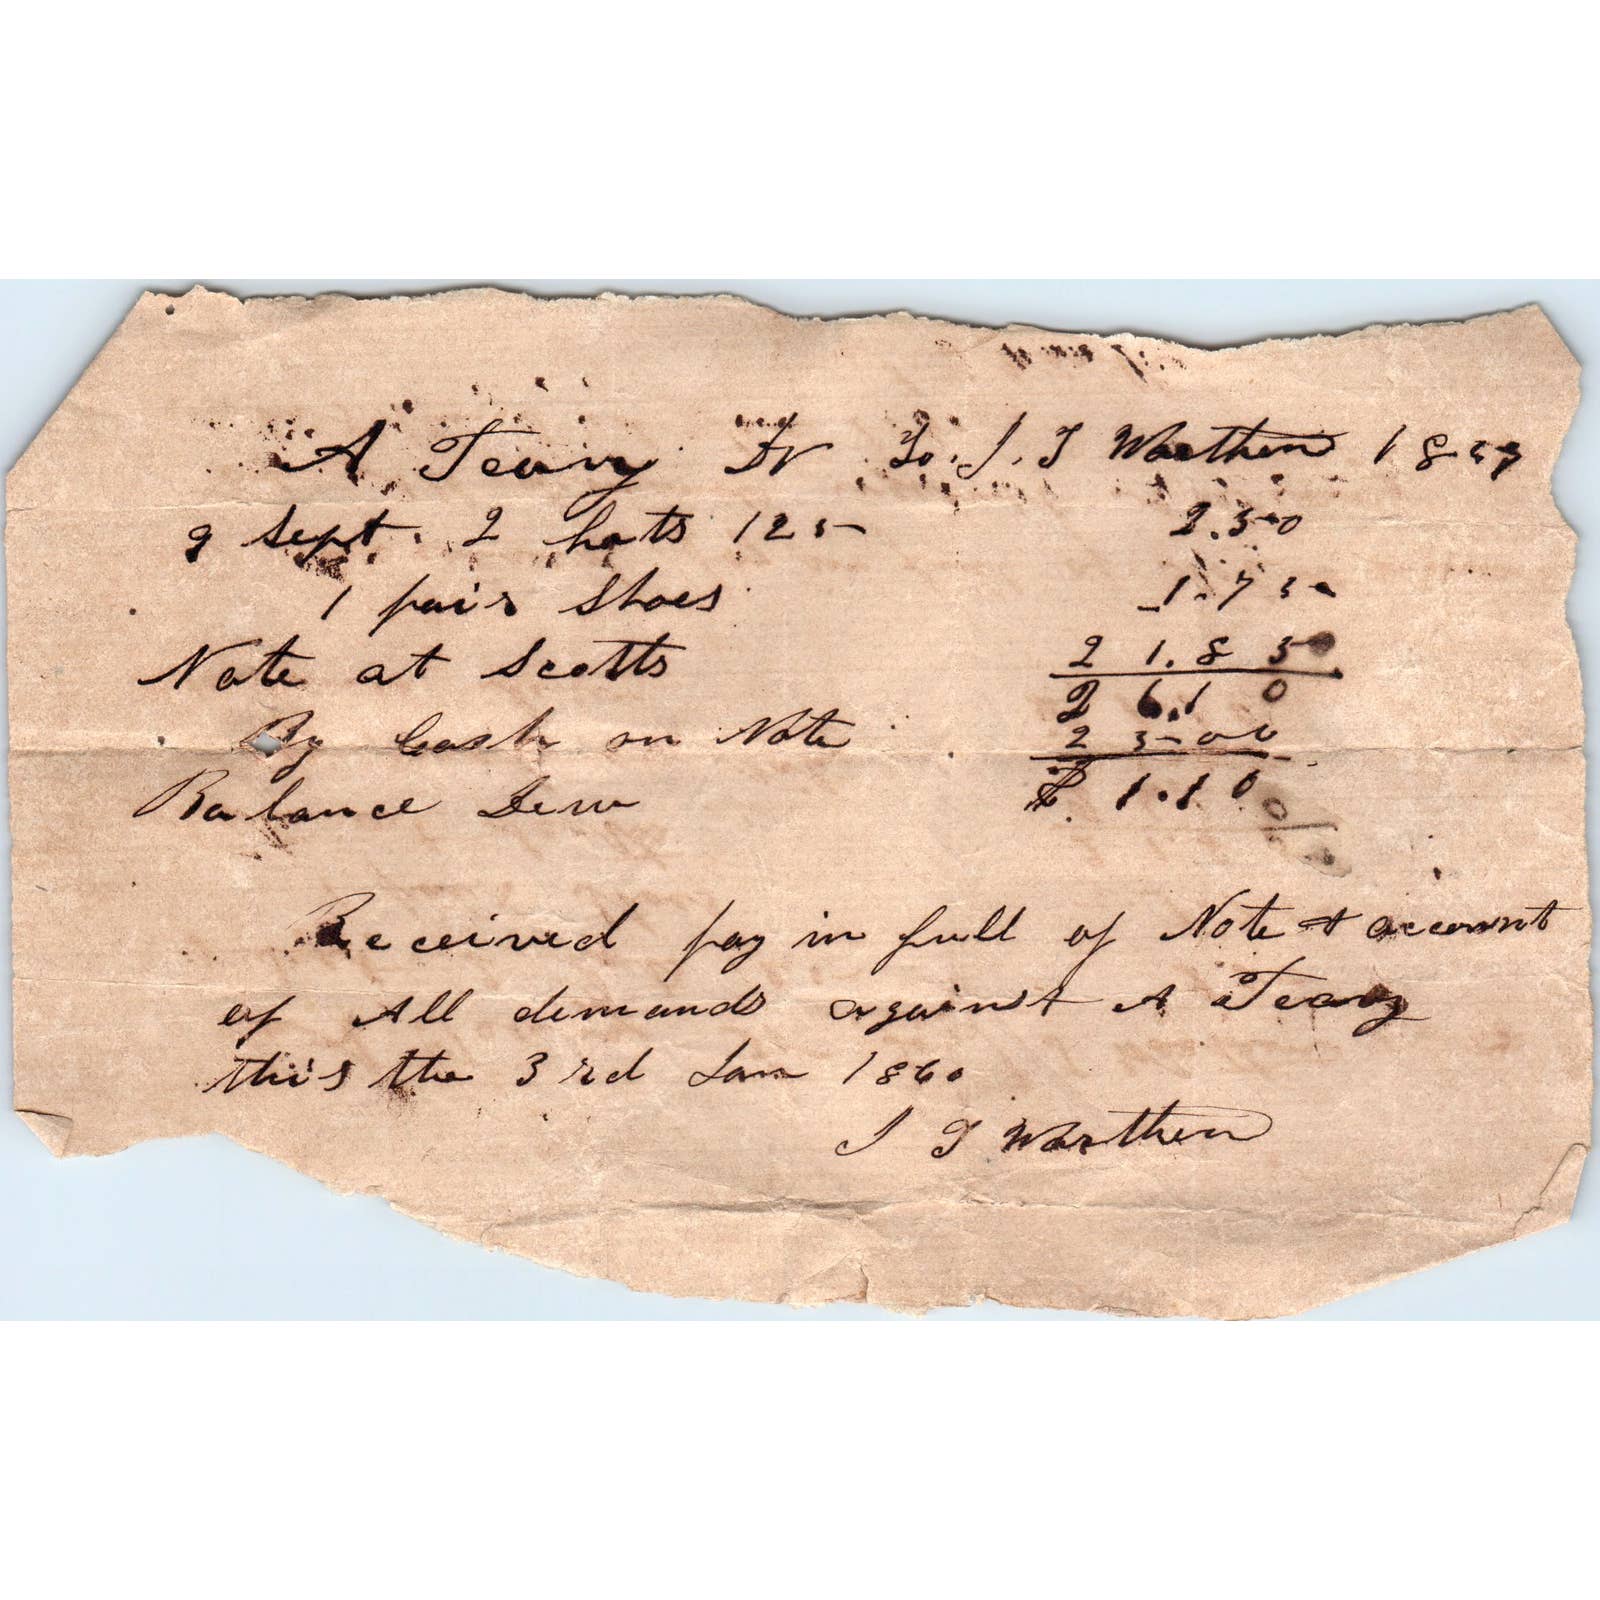 A Teary Dr To. J. T Warthen 1859
9 Sept. 2 hats 125 2.50
1 pair Shoes 1.75
Note at Scotts 21.85
26.10
By Cash on Note 25.00
Balance Dew $ 1.10
Received pay in full of Note & account
of All demands against A Teary
this the 3rd Jan 1860
J T Warthen